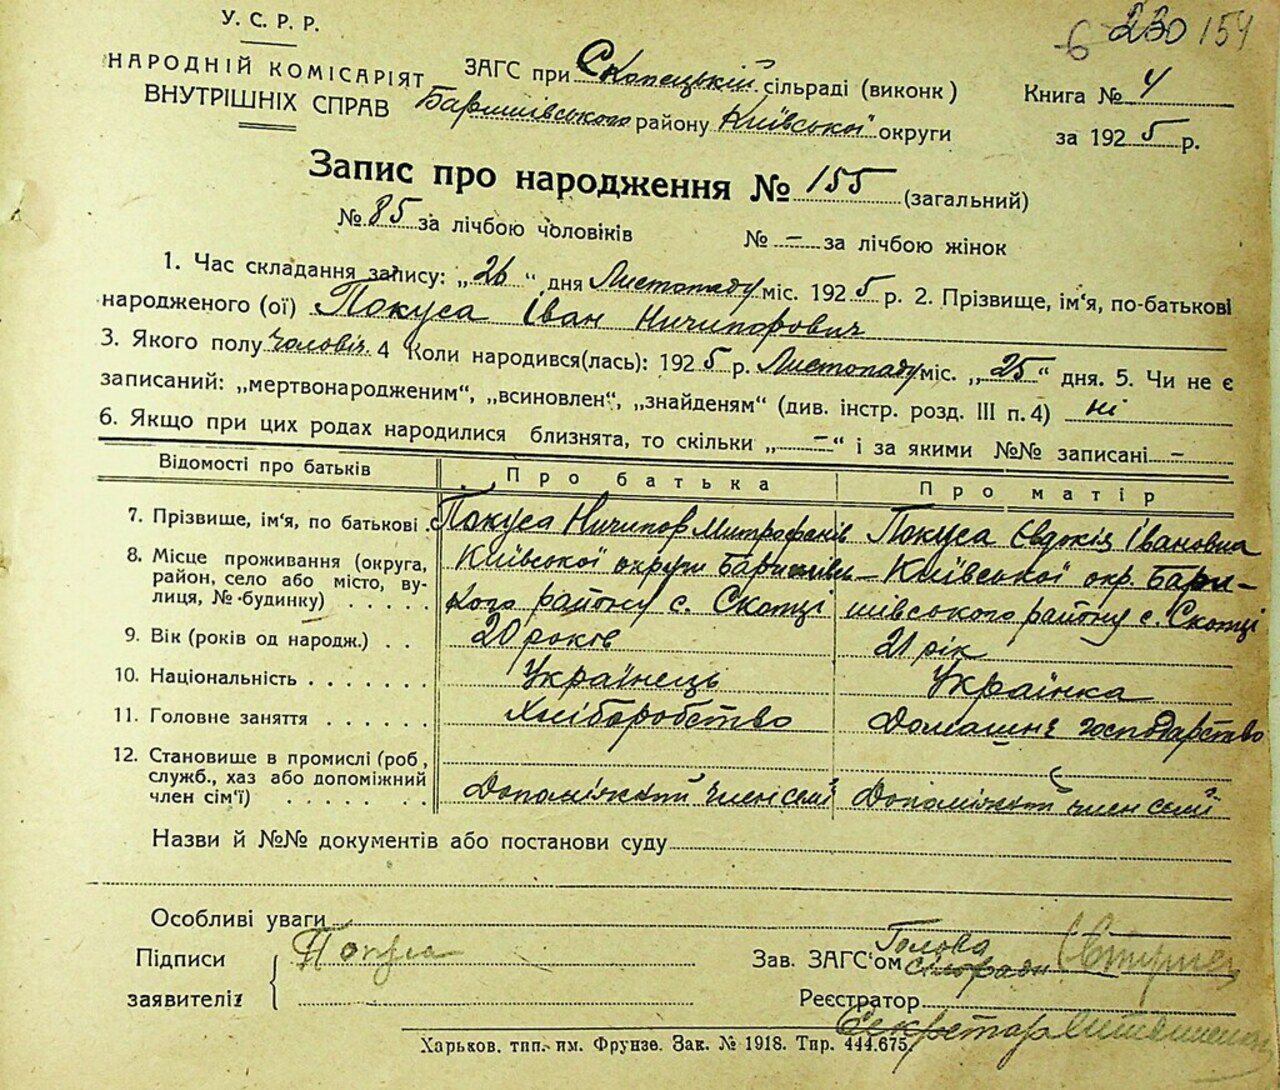 У. С. Р. Р.
6 230 154
НАРОДНІЙ КОМІСАРІЯТ
ВНУТРІШНІХ СПРАВ
ЗАГС при Скопецькій сільраді (виконк)
Баришівського району Київської округи
Книга № 4
за 1925 р.
Запис про народження № 155 (загальний)
№ 85 за лічбою чоловіків № – за лічбою жінок
1. Час складання запису: „26“ дня Листопаду міс. 1925 р. 2. Прізвище, ім'я, по-батькові
народженого (ої) Покуса Іван Ничипорович
3. Якого полу чоловіч. 4 Коли народився(лась): 1925 р. Листопаду міс. „25“ дня. 5. Чи не є
записаний: „мертвонародженим“, „всиновлен“, „знайденям“ (див. інстр. розд. III п. 4) ні
6. Якщо при цих родах народилися близнята, то скільки „–“ і за якими №№ записані –
Відомості про батьків Про батька Про матір
7. Прізвище, ім'я, по батькові . Покуса Ничипор Митрофанів Покуса Євдокія Івановна
8. Місце проживання (округа, район, село або місто, вулиця, № будинку) . . . . . Київської округи Баришівсь–кого району с. Скопці Київської окр. Бари–шівського району с. Скопці
9. Вік (років од народж.) . . 20 років 21 рік
10. Національність . . . . . . . Українець Українка
11. Головне заняття . . . . . . Хліборобство Домашнє господарство
12. Становище в промислі (роб, служб., хаз або допоміжний член сім'ї) . . . . . Допоміжний член семї Допоміжний член семї
Назви й №№ документів або постанови суду
Особливі уваги
Підписи
заявителіз
Покуса
Зав. ЗАГС'ом Голова сільради
Реєстратор
Секретар
Харьков. тип. им. Фрунзе. Зак. № 1918. Тир. 444.675.